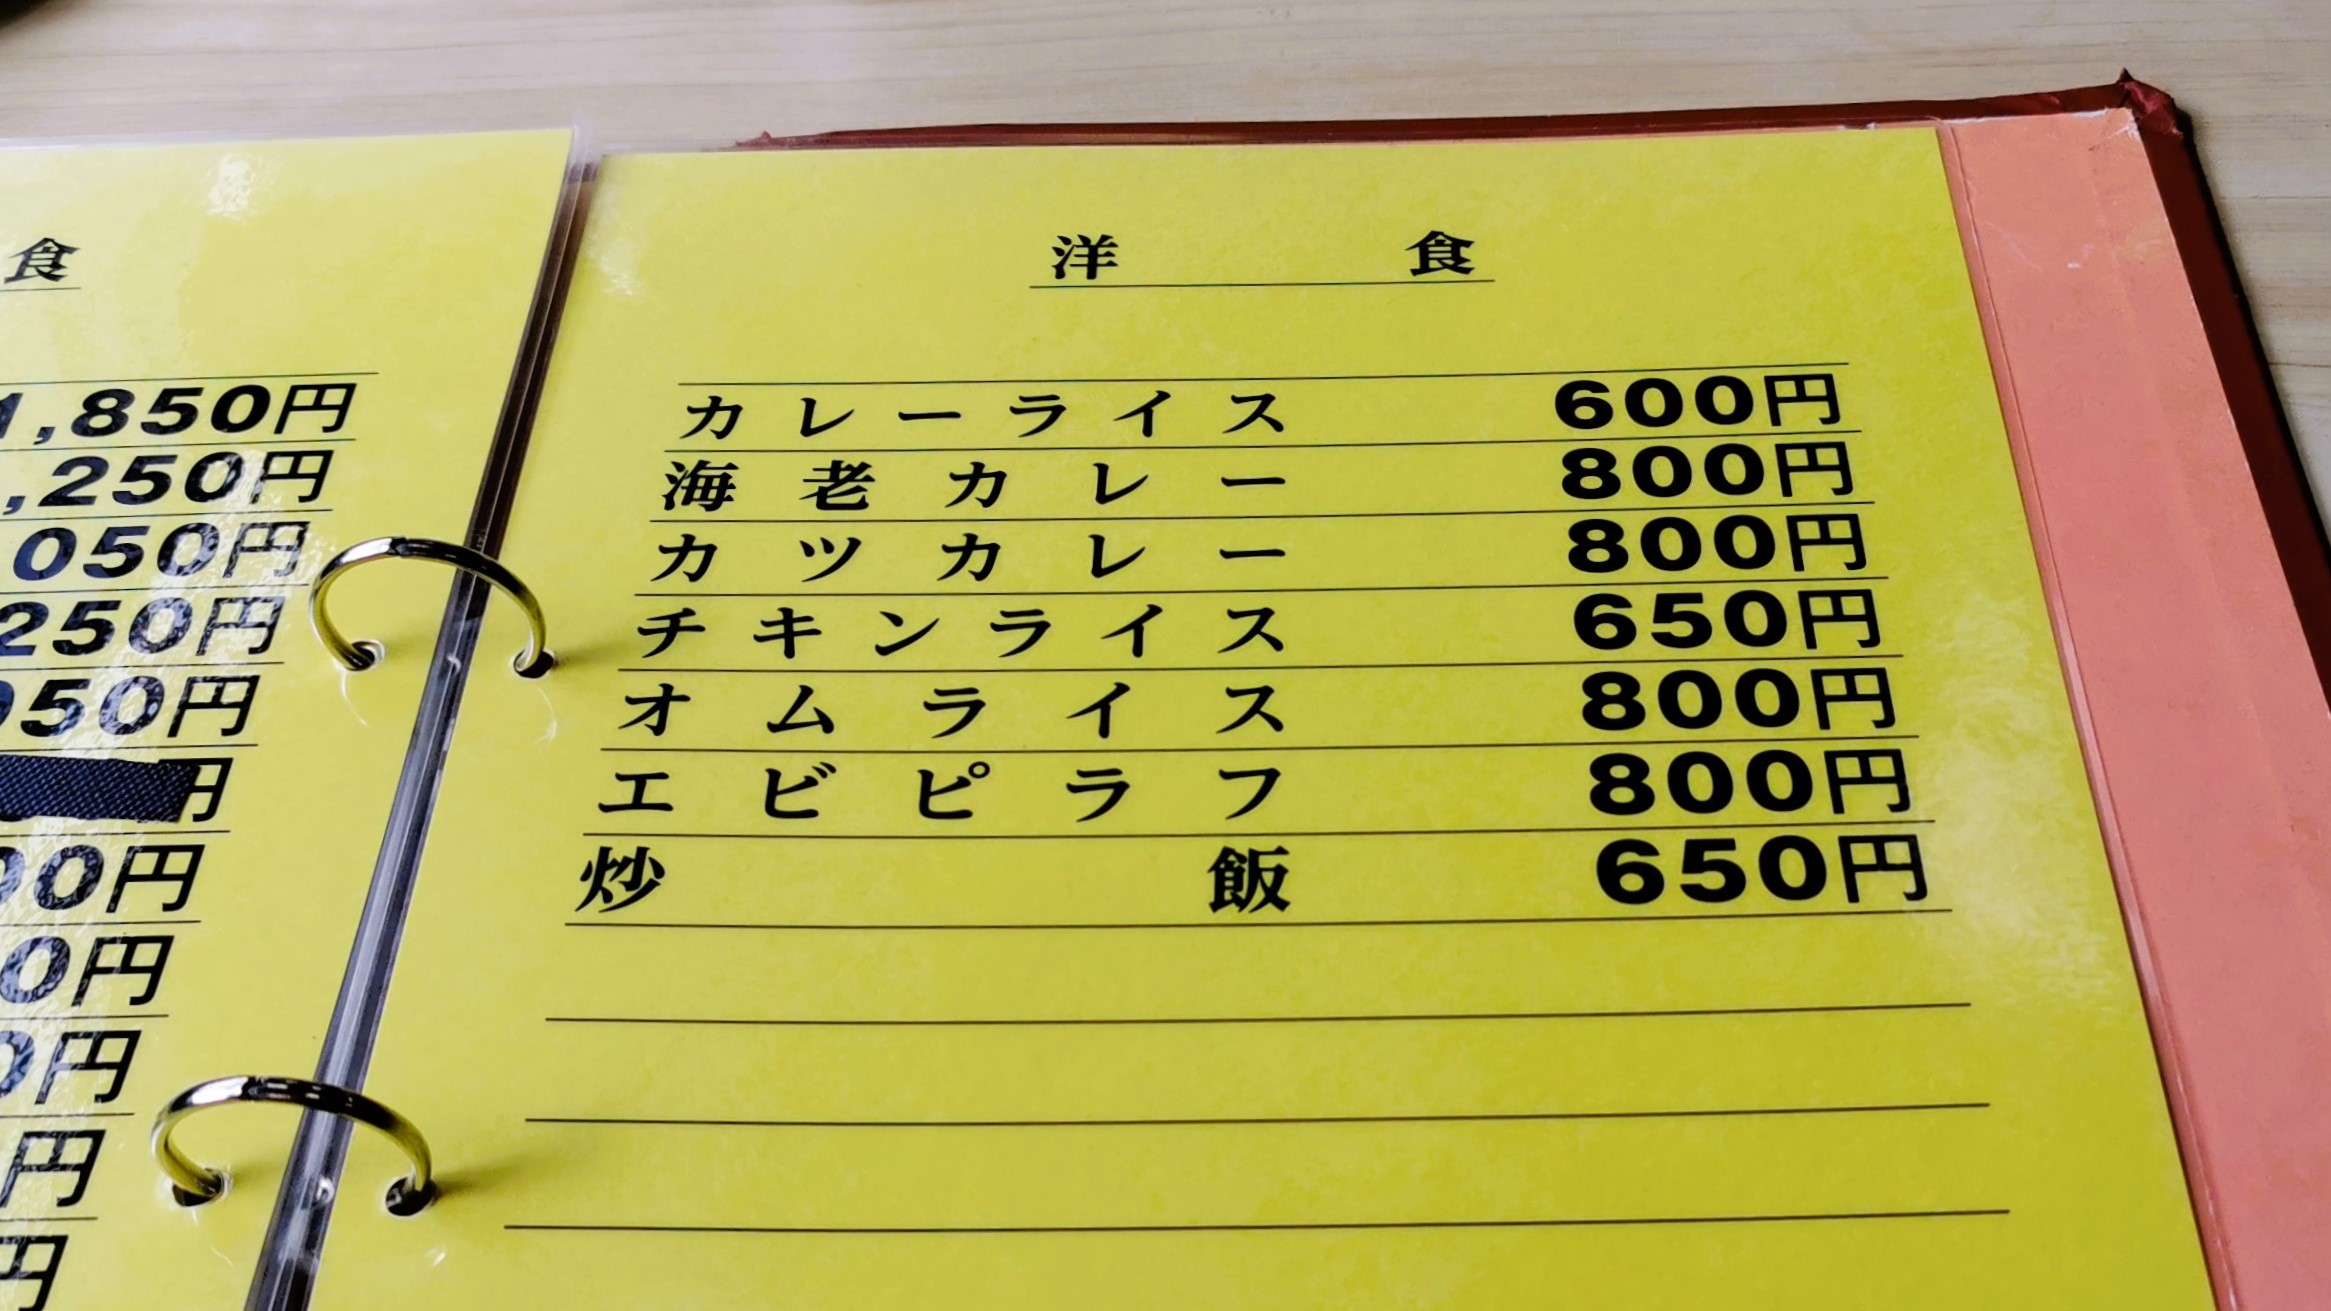 食
1,850円
,250円
050円
250円
050円
円
00円
0円
0円
円
円
洋食
カレーライス 600円
海老カレー 800円
カツカレー 800円
チキンライス 650円
オムライス 800円
エビピラフ 800円
炒飯 650円